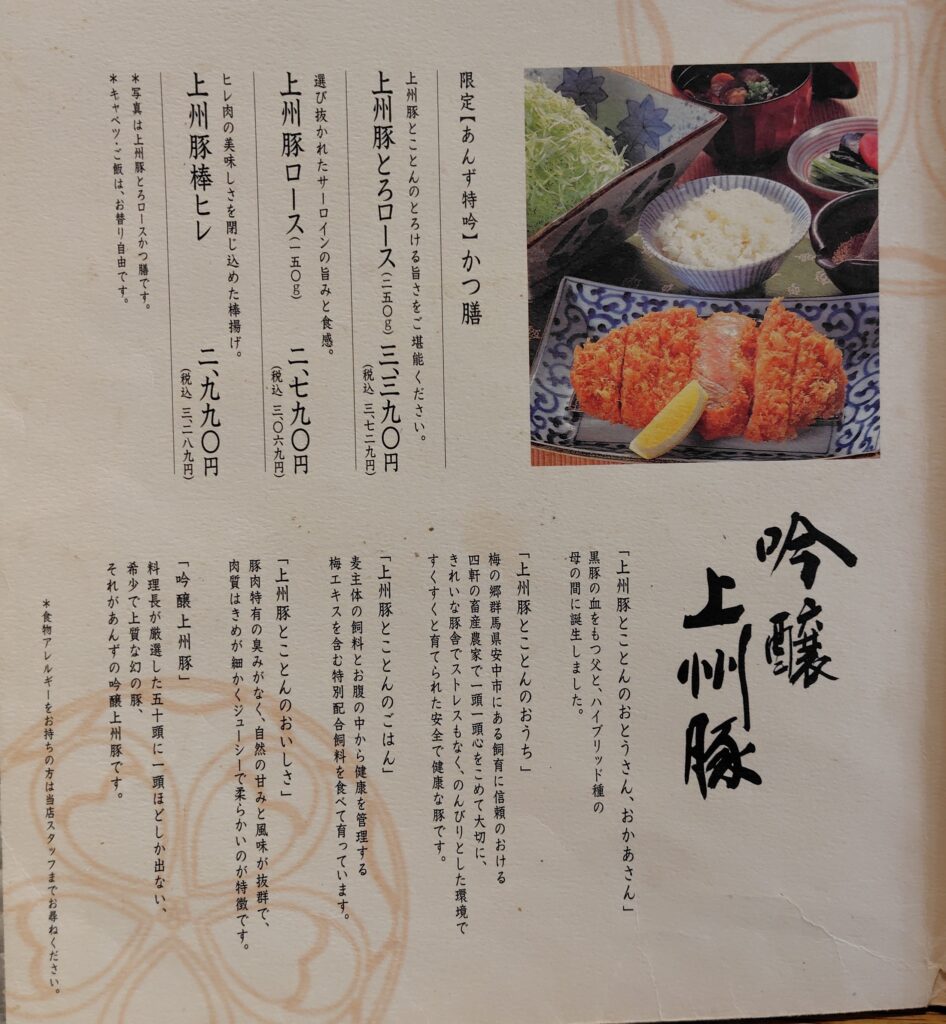 限定【あんず特吟】かつ膳
上州豚とことんのとろける旨さをご堪能ください。
上州豚とろロース(二五〇g) 三、三九〇円
(税込 三、七二九円)
選び抜かれたサーロインの旨みと食感。
上州豚ロース(一五〇g) 二、七九〇円
(税込 三、〇六九円)
ヒレ肉の美味しさを閉じ込めた棒揚げ。
上州豚棒ヒレ 二、九九〇円
(税込 三、二八九円)
*写真は上州豚とろロースかつ膳です。
*キャベツ・ご飯は、お替り自由です。
吟醸
上州豚
「上州豚とことんのおとうさん、おかあさん」
黒豚の血をもつ父と、ハイブリッド種の
母の間に誕生しました。
「上州豚とことんのおうち」
梅の郷群馬県安中市にある飼育に信頼のおける
四軒の畜産農家で一頭一頭心をこめて大切に、
きれいな豚舎でストレスもなく、のんびりとした環境で
すくすくと育てられた安全で健康な豚です。
「上州豚とことんのごはん」
麦主体の飼料とお腹の中から健康を管理する
梅エキスを含む特別配合飼料を食べて育っています。
「上州豚とことんのおいしさ」
豚肉特有の臭みがなく、自然の甘みと風味が抜群で、
肉質はきめが細かくジューシーで柔らかいのが特徴です。
「吟醸上州豚」
料理長が厳選した五十頭に一頭ほどしか出ない、
希少で上質な幻の豚、
それがあんずの吟醸上州豚です。
*食物アレルギーをお持ちの方は当店スタッフまでお尋ねください。